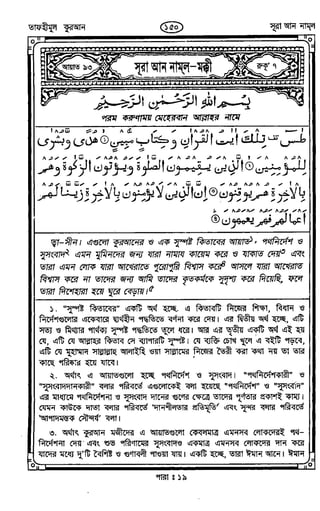 তাফহীমুল কুরআন
১৫০
সূরা আন নামল
আয়াত ৯৩
সূরা আন নামল-মক্কী
রুকূ' ৭
بِسْمِ اللهِ الرَّحْمٰنِ الرَّحِيْمِ
পরম করুণাময় মেহেরবান আল্লাহর নামে
طٰسٓ تِلْكَ اٰيٰتُ الْقُرْاٰنِ وَكِتَابٍ مُّبِيْنٍ ① هُدًى وَّبُشْرٰى
لِلْمُؤْمِنِيْنَ ② الَّذِيْنَ يُقِيْمُوْنَ الصَّلٰوةَ وَيُؤْتُوْنَ الزَّكٰوةَ وَهُمْ
بِالْاٰخِرَةِ هُمْ يُوْقِنُوْنَ ③ اِنَّ الَّذِيْنَ لَا يُؤْمِنُوْنَ بِالْاٰخِرَةِ زَيَّنَّا لَهُمْ
اَعْمَالَهُمْ فَهُمْ يَعْمَهُوْنَ ④
ত্বা-সীন। এগুলো কুরআনের ও এক সুস্পষ্ট কিতাবের আয়াত১, পথনির্দেশ ও
সুসংবাদ২ এমন মুমিনদের জন্য যারা নামায কায়েম করে ও যাকাত দেয়৩ এবং
তারা এমন লোক যারা আখেরাতে পুরোপুরি বিশ্বাস করে৪ আসলে যারা আখেরাত
বিশ্বাস করে না তাদের জন্য আমি তাদের কৃতকর্মকে সুদৃশ্য করে দিয়েছি, ফলে
তারা দিশেহারা হয়ে ঘুরে বেড়ায়।৫
১. "সুস্পষ্ট কিতাবের" একটি অর্থ হচ্ছে, এ কিতাবটি নিজের শিক্ষা, বিধান ও
নির্দেশগুলোর একেবারে দ্ব্যর্থহীন পদ্ধতিতে বর্ণনা করে দেয়। এর দ্বিতীয় অর্থ হচ্ছে, এটি
সত্য ও মিথ্যার পার্থক্য সুস্পষ্ট পদ্ধতিতে তুলে ধরে। আর এর তৃতীয় একটি অর্থ এই হয়
যে, এটি যে আল্লাহর কিতাব সে ব্যাপারটি সুস্পষ্ট। যে ব্যক্তি চোখ খুলে এ বইটি পড়বে,
এটি যে মুহাম্মাদ সাল্লাল্লাহু আলাইহি ওয়া সাল্লামের নিজের তৈরী করা কথা নয় তা তার
কাছে পরিষ্কার হয়ে যাবে।
২. অর্থাৎ এ আয়াতগুলো হচ্ছে পথনির্দেশ ও সুসংবাদ। "পথনির্দেশকারী" ও
"সুসংবাদদানকারী" বলার পরিবর্তে এগুলোকেই বলা হয়েছে "পথনির্দেশ" ও "সুসংবাদ"।
এর মাধ্যমে পথনির্দেশনা ও সুসংবাদ দানের গুণের ক্ষেত্রে তাদের পূর্ণতার প্রকাশই কাম্য।
যেমন কাউকে দাতা বলার পরিবর্তে 'দানশীলতার প্রতিমূর্তি' এবং সুন্দর বলার পরিবর্তে
'আপাদমস্তক সৌন্দর্য' বলা।
৩. অর্থাৎ কুরআন মজীদের এ আয়াতগুলো কেবলমাত্র এমনসব লোকদেরই পথ-
নির্দেশনা দেয় এবং শুভ পরিণামের সুসংবাদও একমাত্র এমনসব লোকদের দান করে
যাদের মধ্যে দু'টি বৈশিষ্ট ও গুণাবলী পাওয়া যায়। একটি হচ্ছে, তারা ঈমান আনে। ঈমান
পারা : ১৯